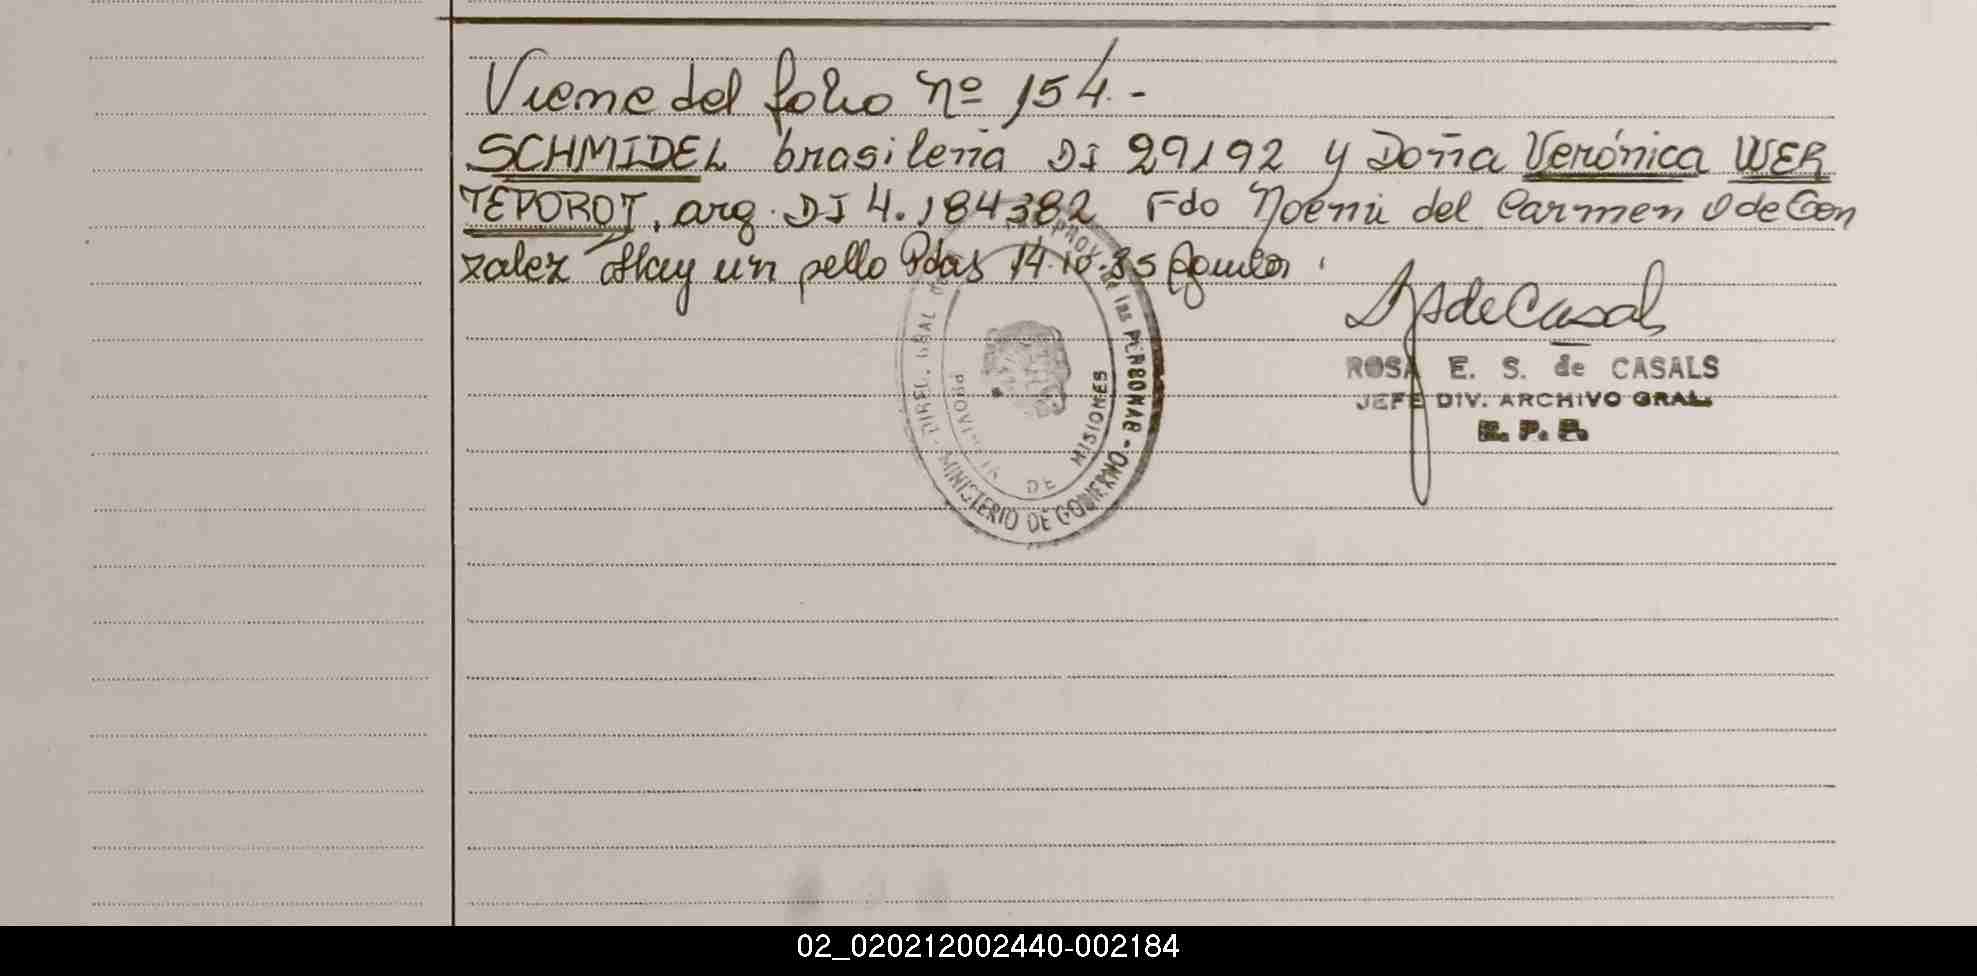 Viene del folio nº 154.-
SCHMIDEL brasileña DI 29192 y Doña Verónica WER
TEPOROT, arg. DI 4.184382 Fdo Noemi del Carmen O de Gon
zalez Hay un sello Pdas 14.10.85
ROSA E. S. de CASALS
JEFE DIV. ARCHIVO GRAL.
R. P. P.
DIREC. GRAL PROV. de las PERSONAS - MINISTERIO DE GOBIERNO -
PROVINCIA DE MISIONES
02_020212002440-002184